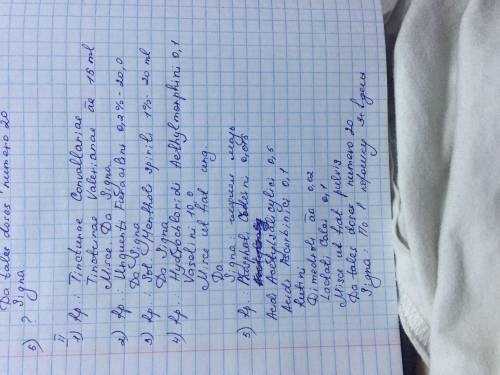 Da tales doses numero 20
Signa
6) ?
II
1) Rp.: Tincturae Convallariae
Tincturae Valerianae āā 15 ml
Misce. Da. Signa.
2) Rp.: Unguenti Furacilini 0,2% - 20,0
Da. Signa
3) Rp.: Sol. Mentholi spiriti 1% - 20 ml
Da. Signa
4) Rp.: Hydrochloridi Aethylmorphini 0,1
Vaselini 10,0
Misce ut fiat ung.
Da
Signa: мазь
5) Rp.:
Acidi Acetylsalicylici 0,5
Acidi Ascorbinici 0,1
Rutini
Dimedroli āā 0,02
Lactati Calcii 0,1
Misce ut fiat pulvis
Da tales doses numero 20
Signa: По 1 порошку 3 в день